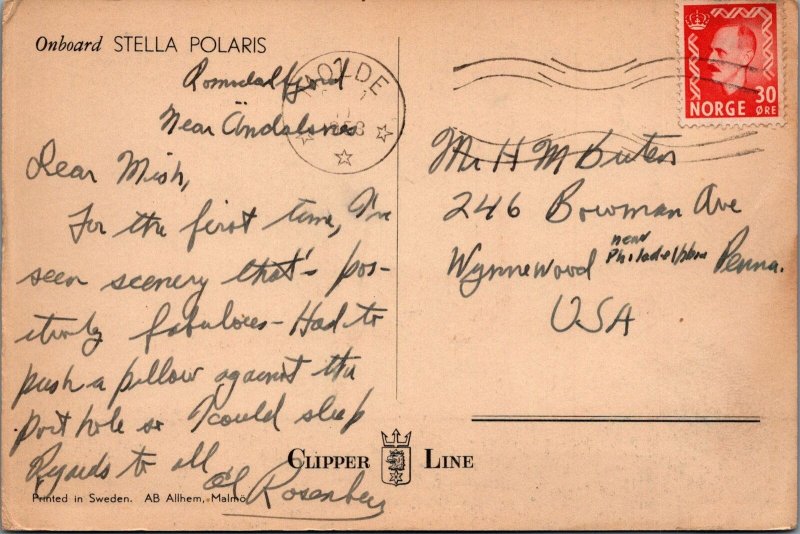 Onboard STELLA POLARIS
Romsdalfjord
Near Åndalsnes
MOLDE
NORGE 30 ØRE
Dear Mish,
For the first time, I've
seen scenery that's pos-
itively fabulous - Had to
push a pillow against the
port hole so I could sleep
Regards to all
Al Rosenberg
Mr H M
246 Bowman Ave
Wynnewood near Philadelphia Penna.
USA
CLIPPER LINE
Printed in Sweden. AB Allhem, Malmö